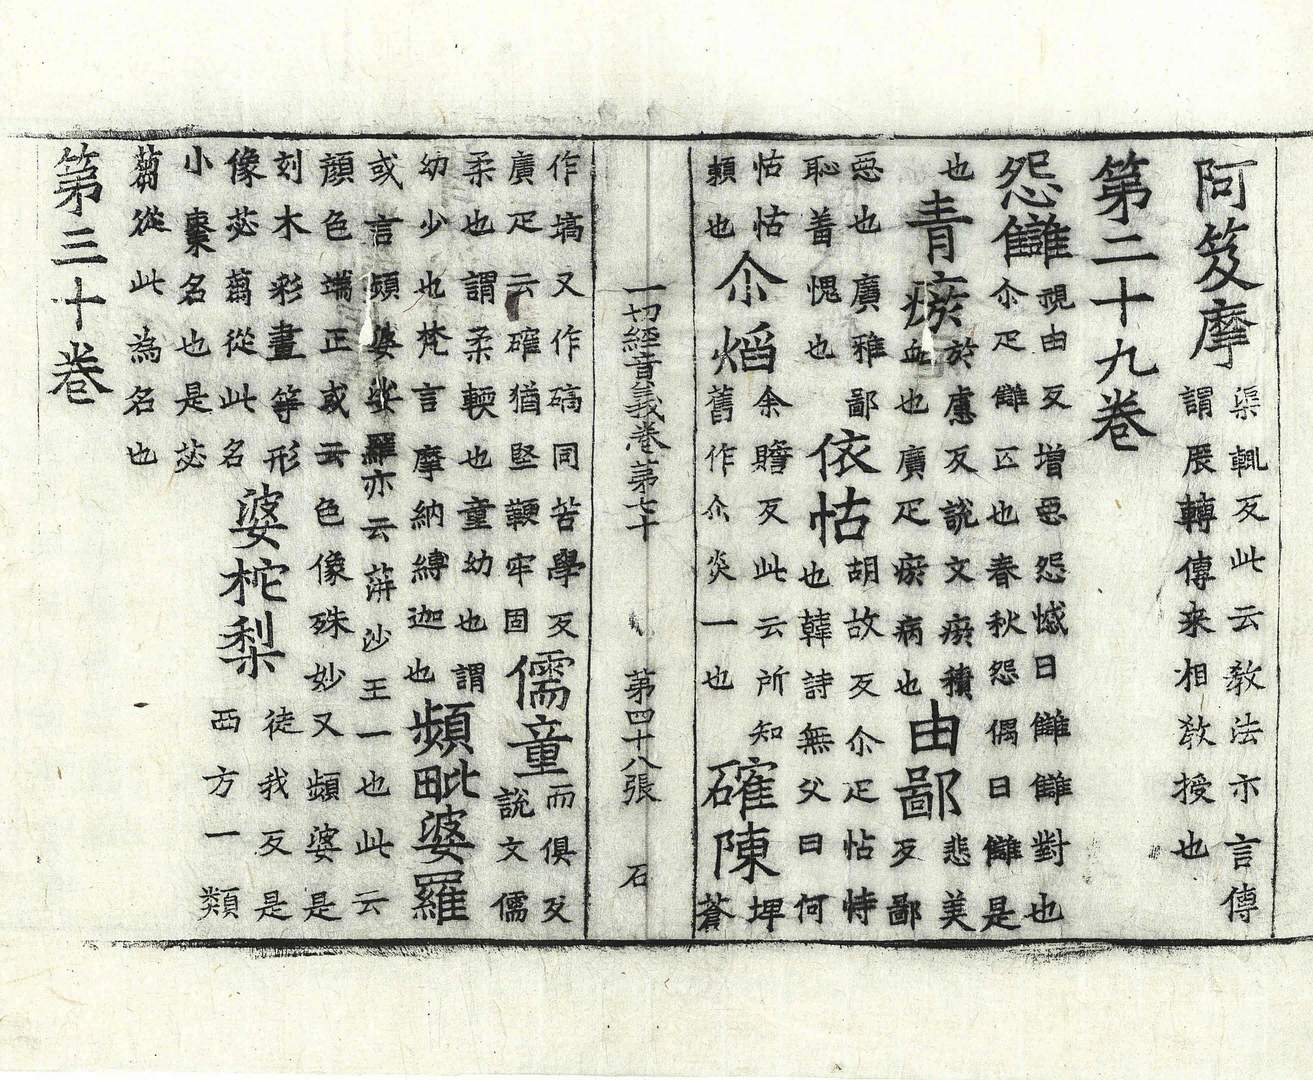 阿笈摩渠輒反此云教法亦言傳
謂展轉傳来相教授也
第二十九卷
怨讎視由反增惡怨憾曰讎讎對也
尒疋讎匹也春秋怨偶曰讎是
也青瘀於慮反說文瘀積
血也廣疋瘀病也由鄙悲美
反鄙
惡也廣雅鄙
恥着愧也依怙胡故反尒疋怙恃
也韓詩無父曰何
怙怙
賴也尒熖余贍反此云所知
舊作尒炎一也確陳埤
蒼
一切經音義卷第七十 第四十八張 石
作塙又作碻同苦學反
廣疋云確猶堅鞕牢固儒童而俱反
說文儒
柔也謂柔鞕也童幼也謂
幼少也梵言摩納縛迦也頻毗婆羅
或言頻婆娑羅亦云蓱沙王一也此云
顏色端正或云色像殊妙又頻婆是
刻木彩畫等形
像苾蒭從此名婆柁梨徒我反是
西方一類
小棗名也是苾
蒭從此為名也
第三十卷